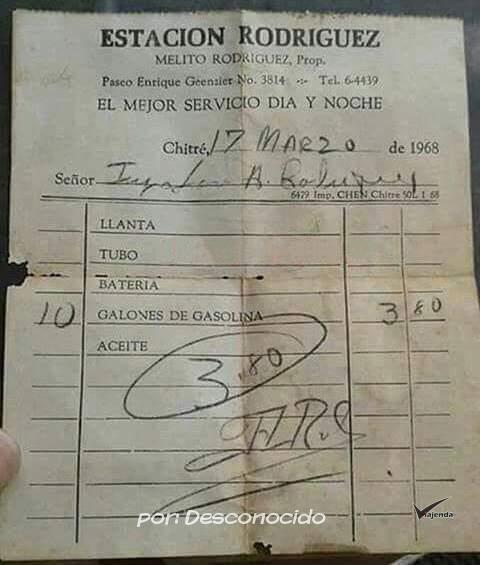 ESTACION RODRIGUEZ
MELITO RODRIGUEZ, Prop.
Paseo Enrique Geenzier No. 3814 -:- Tel. 6-4439
EL MEJOR SERVICIO DIA Y NOCHE
Chitré, 17 MARZO de 1968
Señor A. Rodriguez
6479 Imp. CHEN Chitre 50L 1 68
LLANTA
TUBO
BATERIA
10 GALONES DE GASOLINA 3 80
ACEITE
3.80
por: Desconocido
Viajenda